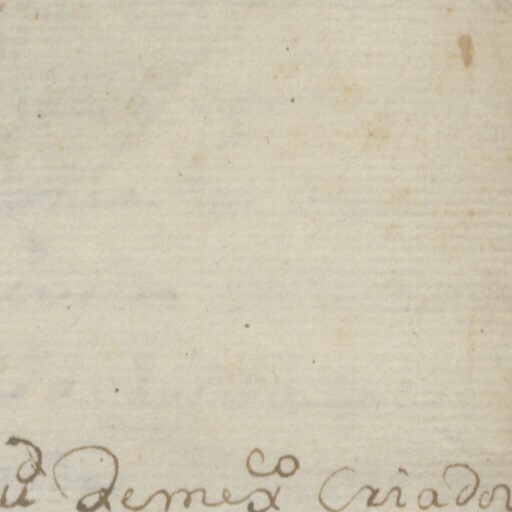 ud de mexco Criador